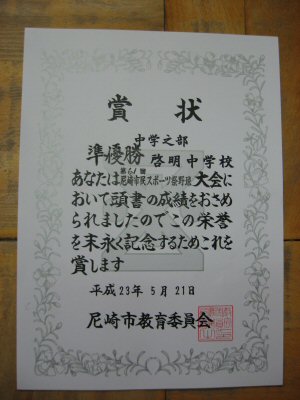 賞状
中学之部
準優勝 啓明中学校
あなたは第61回尼崎市民スポーツ祭野球大会に
おいて頭書の成績をおさめ
られましたのでこの栄誉
を末永く記念するためこれを
賞します
平成23年5月21日
尼崎市教育委員会